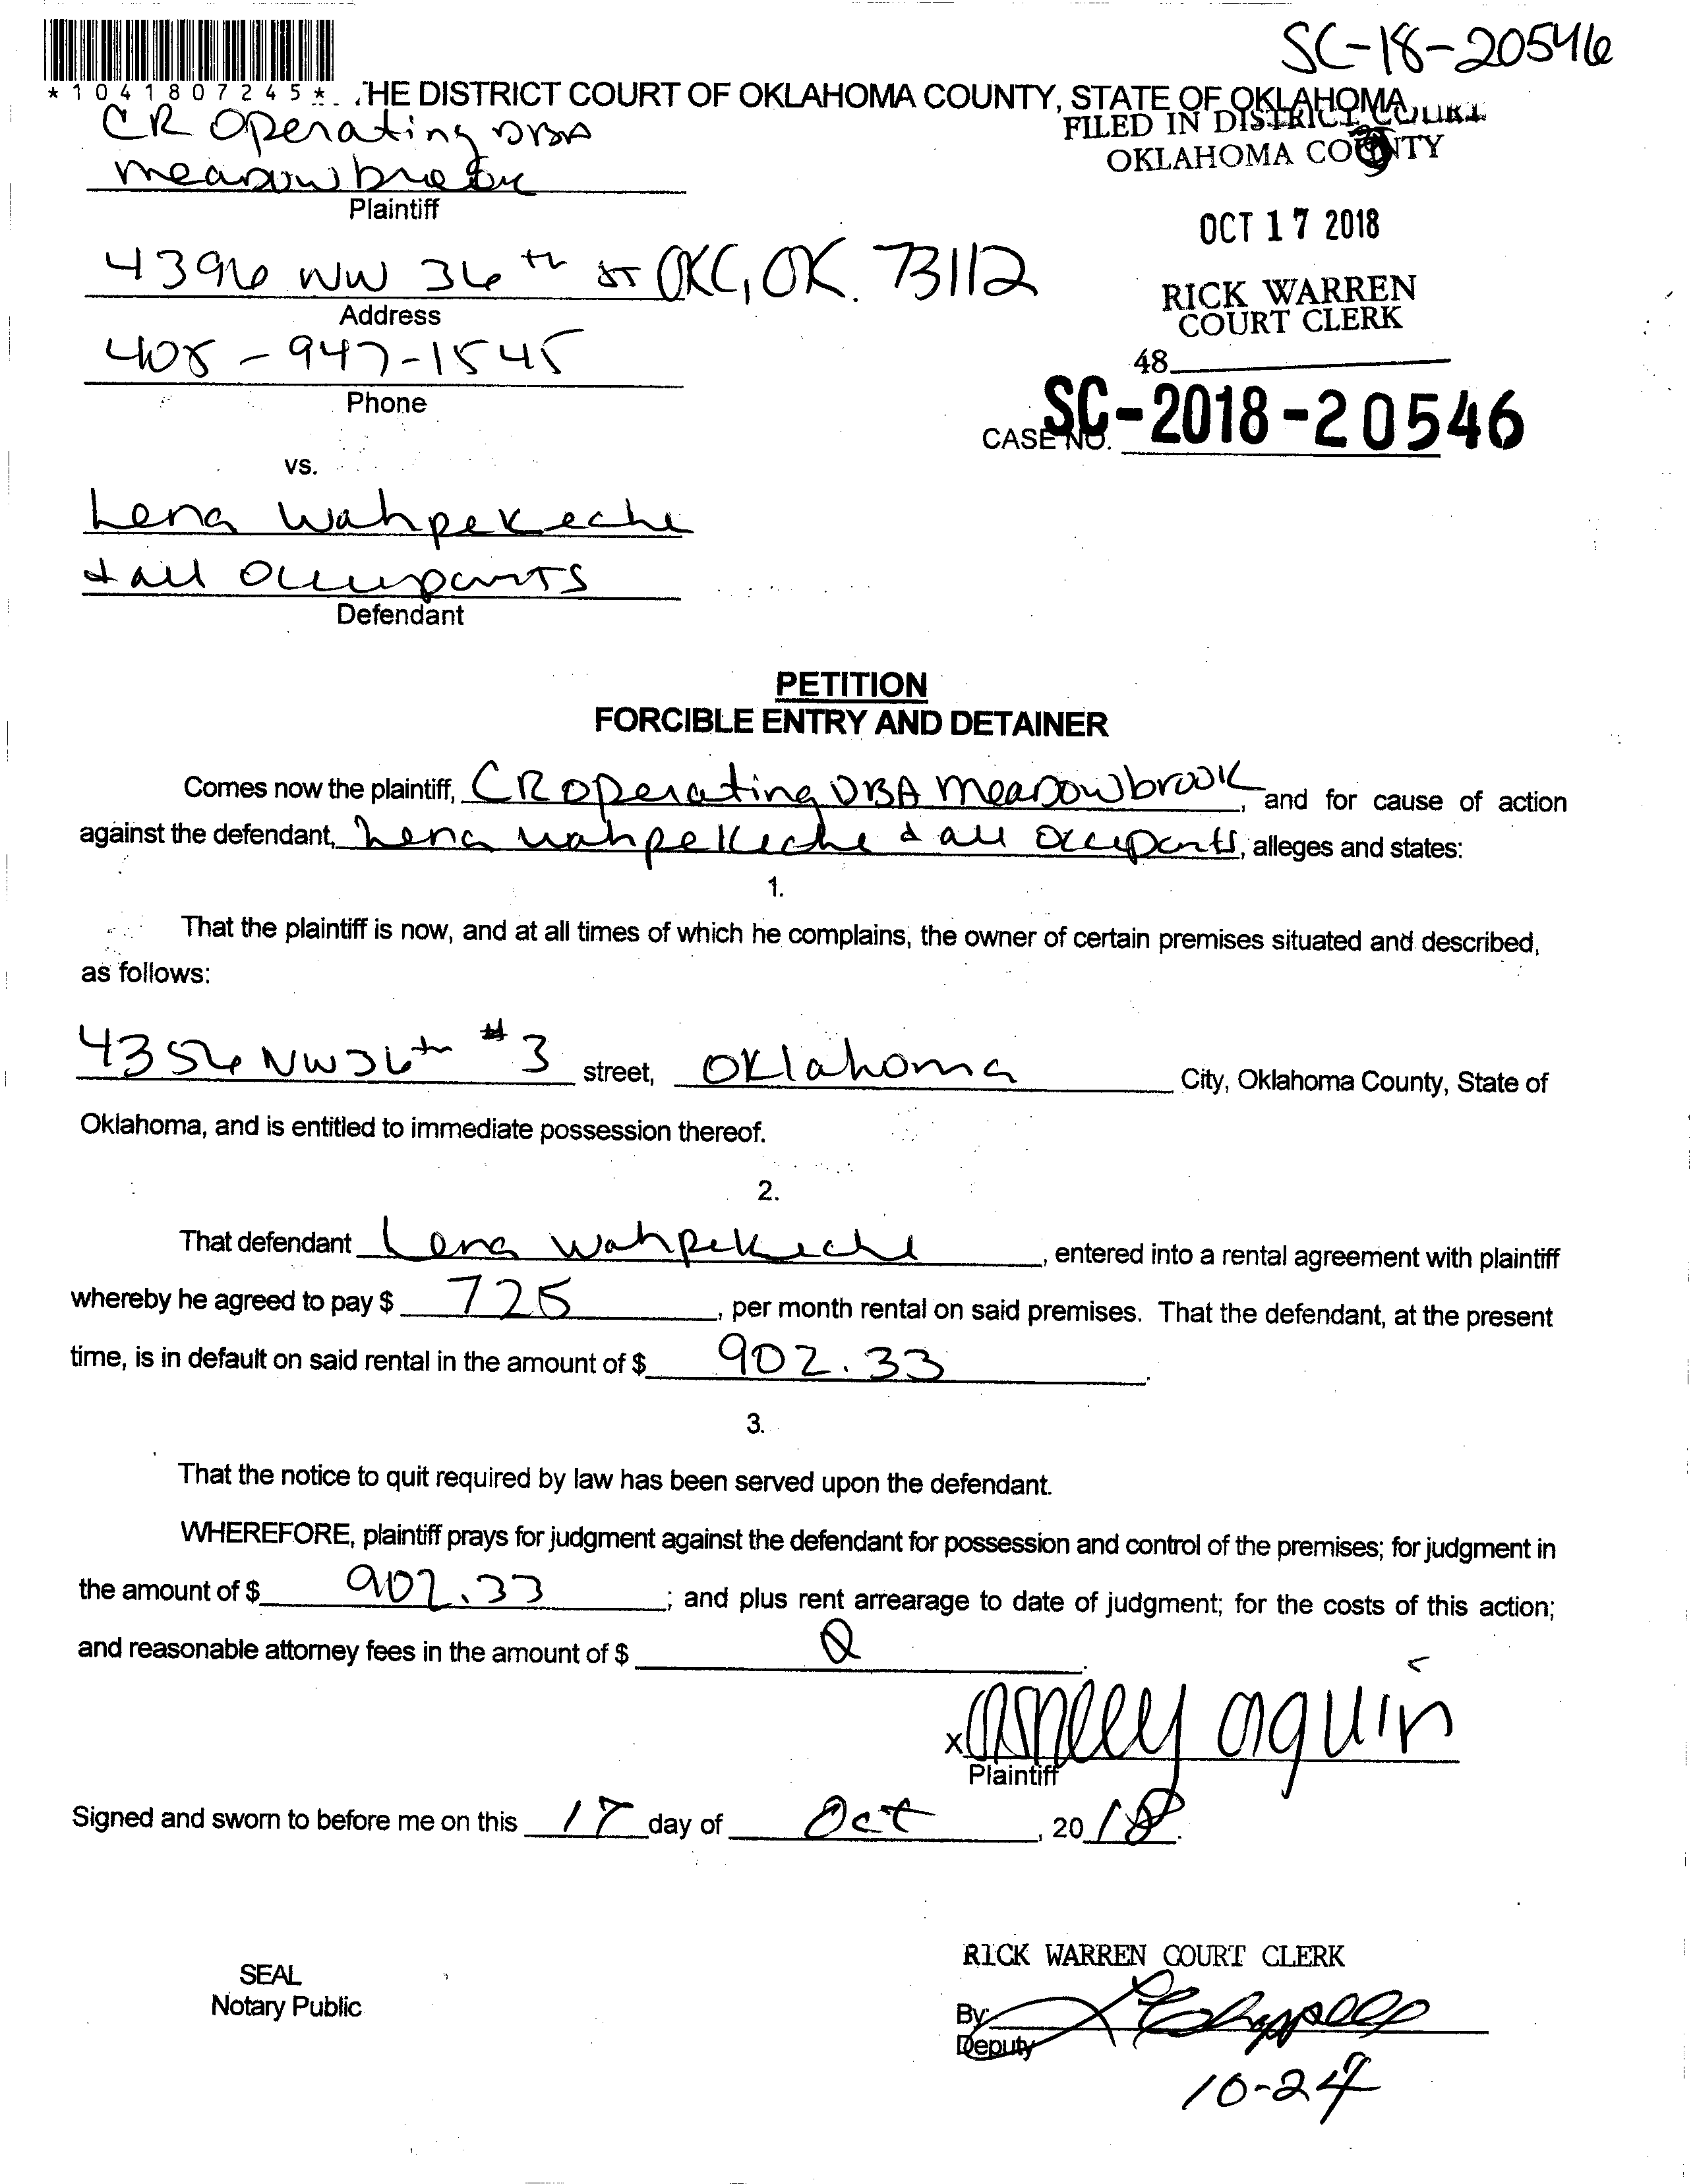 SC-18-20546
*1041807245*
THE DISTRICT COURT OF OKLAHOMA COUNTY, STATE OF OKLAHOMA
CR Operating DBA
Meadowbrook
Plaintiff
FILED IN DISTRICT COURT
OKLAHOMA COUNTY
OCT 17 2018
4396 NW 36th ST OKC, OK. 73112
Address
RICK WARREN
COURT CLERK
405-947-1545
Phone
48
CASE NO. SC-2018-20546
vs.
Lena Wahpekeche
& all Occupants
Defendant
PETITION
FORCIBLE ENTRY AND DETAINER
Comes now the plaintiff, CR Operating DBA Meadowbrook, and for cause of action
against the defendant, Lena Wahpekeche & all Occupants, alleges and states:
1.
That the plaintiff is now, and at all times of which he complains, the owner of certain premises situated and described,
as follows:
4354 NW 36th #3 street, Oklahoma City, Oklahoma County, State of
Oklahoma, and is entitled to immediate possession thereof.
2.
That defendant Lena Wahpekeche, entered into a rental agreement with plaintiff
whereby he agreed to pay $ 725, per month rental on said premises. That the defendant, at the present
time, is in default on said rental in the amount of $ 902.33.
3.
That the notice to quit required by law has been served upon the defendant.
WHEREFORE, plaintiff prays for judgment against the defendant for possession and control of the premises; for judgment in
the amount of $ 902.33; and plus rent arrearage to date of judgment; for the costs of this action;
and reasonable attorney fees in the amount of $ 0.
x Ashley Aguin
Plaintiff
Signed and sworn to before me on this 17 day of Oct, 2018.
SEAL
Notary Public
RICK WARREN COURT CLERK
By: Chappell
Deputy
10-24